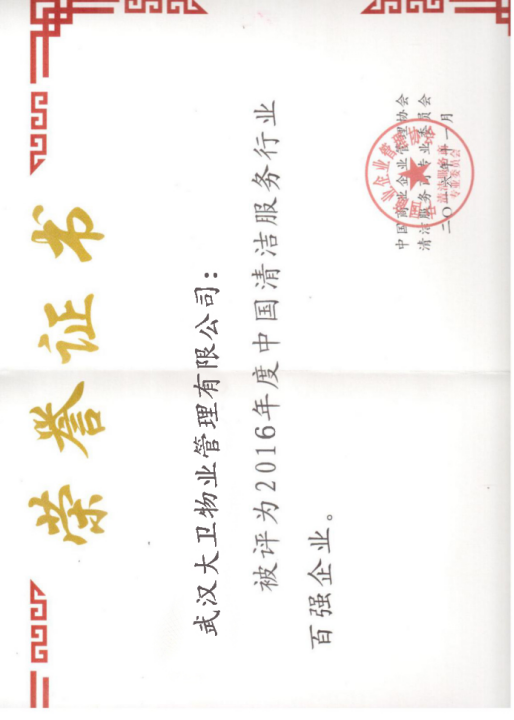 荣誉证书
武汉大卫物业管理有限公司：
被评为2016年度中国清洁服务行业
百强企业。
中国商业企业管理协会
清洁服务商专业委员会
二〇一六年十一月